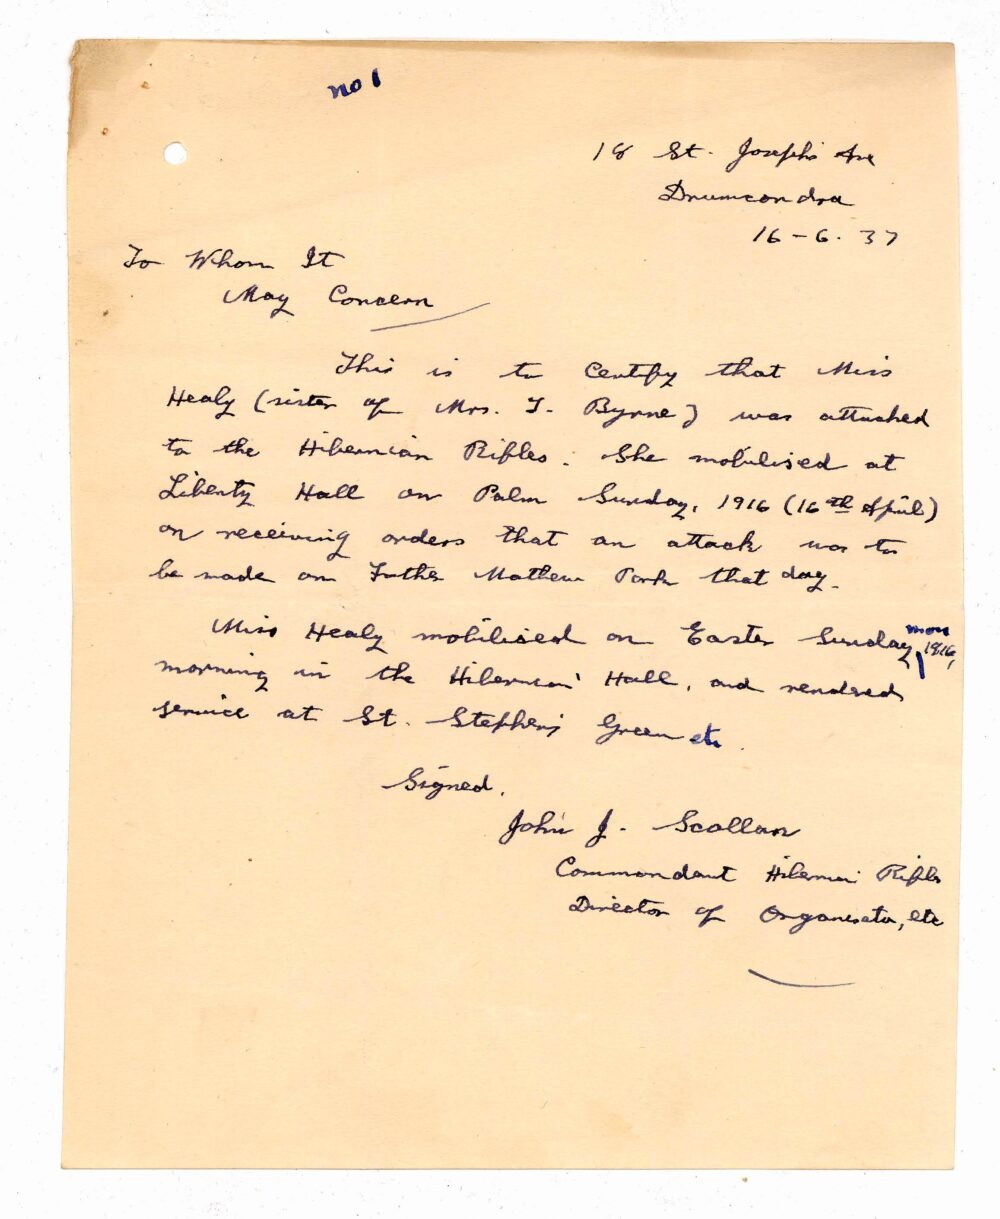 no 1
18 St. Joseph's Ave
Drumcondra
16-6.37
To Whom It
May Concern
This is to Certify that Miss
Healy (sister of Mrs. T. Byrne) was attached
to the Hibernian Rifles. She mobilised at
Liberty Hall on Palm Sunday, 1916 (16th April)
on receiving orders that an attack was to
be made on Father Mathew Park that day.
Miss Healy mobilised on Easter Sunday, mon 1916,
morning in the Hibernian Hall, and rendered
service at St. Stephen's Green etc.
Signed.
John J. Scollan
Commandant Hibernian Rifles
Director of Organisation, etc